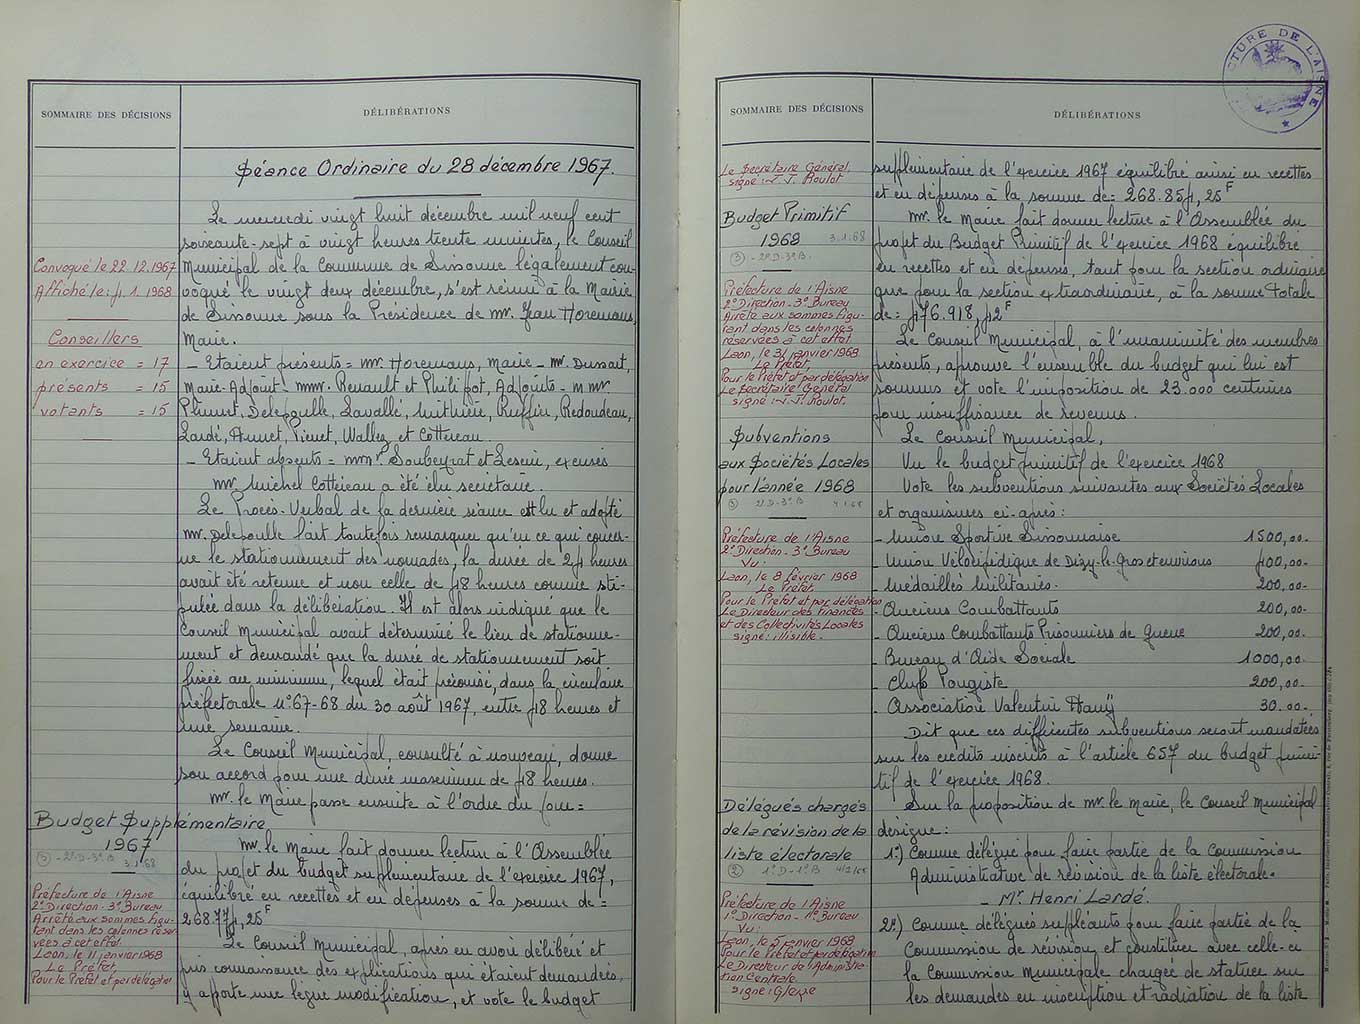 SOMMAIRE DES DÉCISIONS
DÉLIBÉRATIONS
Séance Ordinaire du 28 décembre 1967.
Le mercredi vingt huit décembre mil neuf cent
soixante-sept à vingt heures trente minutes, le Conseil
Municipal de la Commune de Sissonne légalement con-
voqué le vingt deux décembre, s'est réuni à la Mairie
de Sissonne sous la Présidence de Mr. Jean Horemans,
Maire.
Convoqué le 22.12.1967
Affiché le: 4.1.1968
Conseillers
en exercice = 17
présents = 15
votants = 15
- Etaient présents = Mr. Horemans, Maire - Mr. Dussart,
Maire-Adjoint - MMr. Renault et Philipot, Adjoints - M Mr
Plumet, Delepoulle, Lavallé, Ruffin, Redoudeau,
Lardé, Hunet, Wallez et Cottereau.
- Etaient absents = MMr. Soubeyrat et excusés
Mr. Michel Cottereau a été élu secrétaire.
Le Procès-Verbal de la dernière séance est lu et adopté
Mr. Delepoulle fait toutefois remarquer qu'en ce qui concer-
ne le stationnement des nomades, la durée de 24 heures
avait été retenue et non celle de 48 heures comme sti-
pulée dans la délibération. Il est alors indiqué que le
Conseil Municipal avait déterminé le lieu de stationne-
ment et demandé que la durée de stationnement soit
fixée au minimum, lequel était préconisé, dans la circulaire
préfectorale n° 67-68 du 30 août 1967, entre 48 heures et
une semaine.
Le Conseil Municipal, consulté à nouveau, donne
son accord pour une durée maximum de 48 heures.
Mr. le Maire passe ensuite à l'ordre du jour =
Budget Supplémentaire
1967
(3) - 2°D - 3°B 3.1.68
Mr. le Maire fait donner lecture à l'Assemblée
du projet du budget supplémentaire de l'exercice 1967,
équilibré en recettes et en dépenses à la somme de =
268.774,25F
Le Conseil Municipal, après en avoir délibéré et
pris connaissance des explications qui étaient demandées,
y apporte une légère modification, et vote le budget
Préfecture de l'Aisne
2° Direction - 3° Bureau
Arrêté aux sommes figu-
rant dans les colonnes réser-
vées à cet effet.
Laon, le 11 janvier 1968
Le Préfet,
Pour le Préfet et par délégation
SOMMAIRE DES DÉCISIONS
DÉLIBÉRATIONS
PRÉFECTURE DE L'AISNE
Le Secrétaire Général,
signé: J. J. Roulot
supplémentaire de l'exercice 1967 équilibré ainsi en recettes
et en dépenses à la somme de = 268.854,25F
Budget Primitif
1968 3.1.68
(3) - 2°D - 3°B.
Mr. le Maire fait donner lecture à l'Assemblée du
projet du Budget Primitif de l'exercice 1968 équilibré
en recettes et en dépenses, tant pour la section ordinaire
que pour la section extraordinaire, à la somme totale
de = 476.918,42F
Préfecture de l'Aisne
2° Direction - 3° Bureau
Arrêté aux sommes figu-
rant dans les colonnes
réservées à cet effet.
Laon, le 31 janvier 1968
Le Préfet,
Pour le Préfet et par délégation
Le Secrétaire Général
signé: J. J. Roulot.
Le Conseil Municipal, à l'unanimité des membres
présents, approuve l'ensemble du budget qui lui est
soumis et vote l'imposition de 23.000 centimes
pour insuffisance de revenus.
Subventions
aux Sociétés Locales
pour l'année 1968
(3) 2°D - 3°B 4.1.68
Le Conseil Municipal,
Vu le budget primitif de l'exercice 1968
Vote les subventions suivantes aux Sociétés Locales
et organismes ci-après:
- Union Sportive Sissonnaise 1500,00.
- Union Vélocipédique de Dizy-le-Gros et environs 400,00.
- Médaillés Militaires. 200,00.
- Anciens Combattants 200,00.
- Anciens Combattants Prisonniers de Guerre 200,00.
- Bureau d'Aide Sociale 1000,00.
- Club Pongiste 200,00.
- Association Valentin Haüy 30.00.
Préfecture de l'Aisne
2° Direction - 3° Bureau
Vu:
Laon, le 8 février 1968
Le Préfet,
Pour le Préfet et par délégation
Le Directeur des Finances
et des Collectivités Locales
signé: illisible.
Dit que ces différentes subventions seront mandatées
sur les crédits inscrits à l'article 657 du budget primi-
tif de l'exercice 1968.
Délégués chargés
de la révision de la
liste électorale
(2) 1°D - 1°B
Sur la proposition de Mr. le Maire, le Conseil Municipal
désigne:
1°) Comme délégué pour faire partie de la Commission
Administrative de révision de la liste électorale.
- Mr. Henri Lardé.
2°) Comme délégués suppléants pour faire partie de la
Commission de révision, et constituer avec celle-ci
la Commission Municipale chargée de statuer sur
les demandes en inscription et radiation de la liste
Préfecture de l'Aisne
1° Direction - 1° Bureau
Vu:
Laon, le 5 janvier 1968
Pour le Préfet et par délégation
Le Directeur de l'Administra-
tion Centrale
signé: